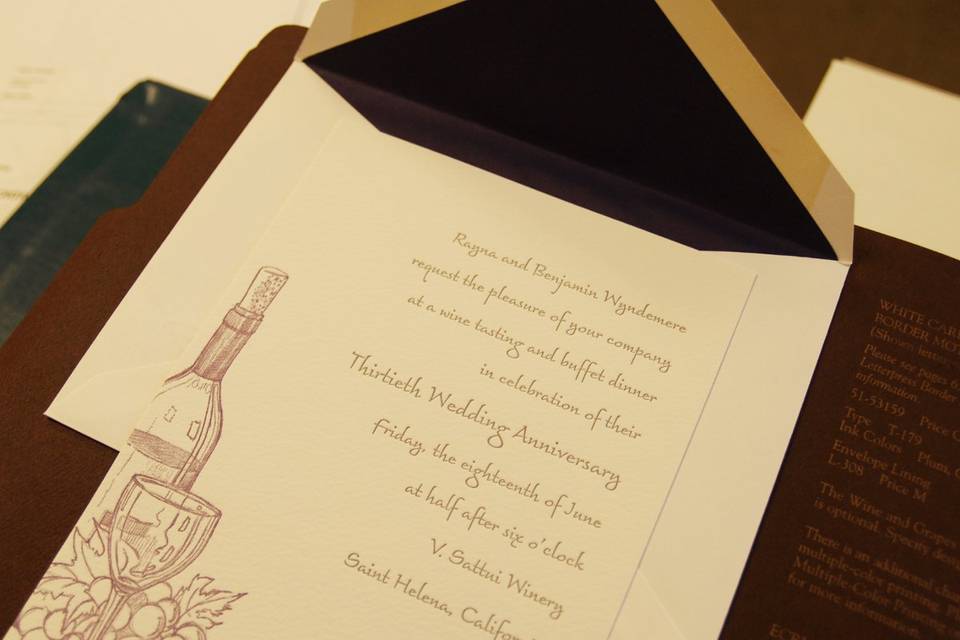 Rayna and Benjamin Wyndemere
request the pleasure of your company
at a wine tasting and buffet dinner
in celebration of their
Thirtieth Wedding Anniversary
Friday, the eighteenth of June
at half after six o'clock
V. Sattui Winery
Saint Helena, Califor
WHITE CAR
BORDER MO
(Shown letter
Please see pages
Letterpress Border
information.
51-53159 Price
Type T-179
Ink Colors Plum,
Envelope Lining
L-308 Price M
The Wine and Grapes
is optional. Specify
There is an additional
multiple-color printing.
Multiple-Color Printing
for more information